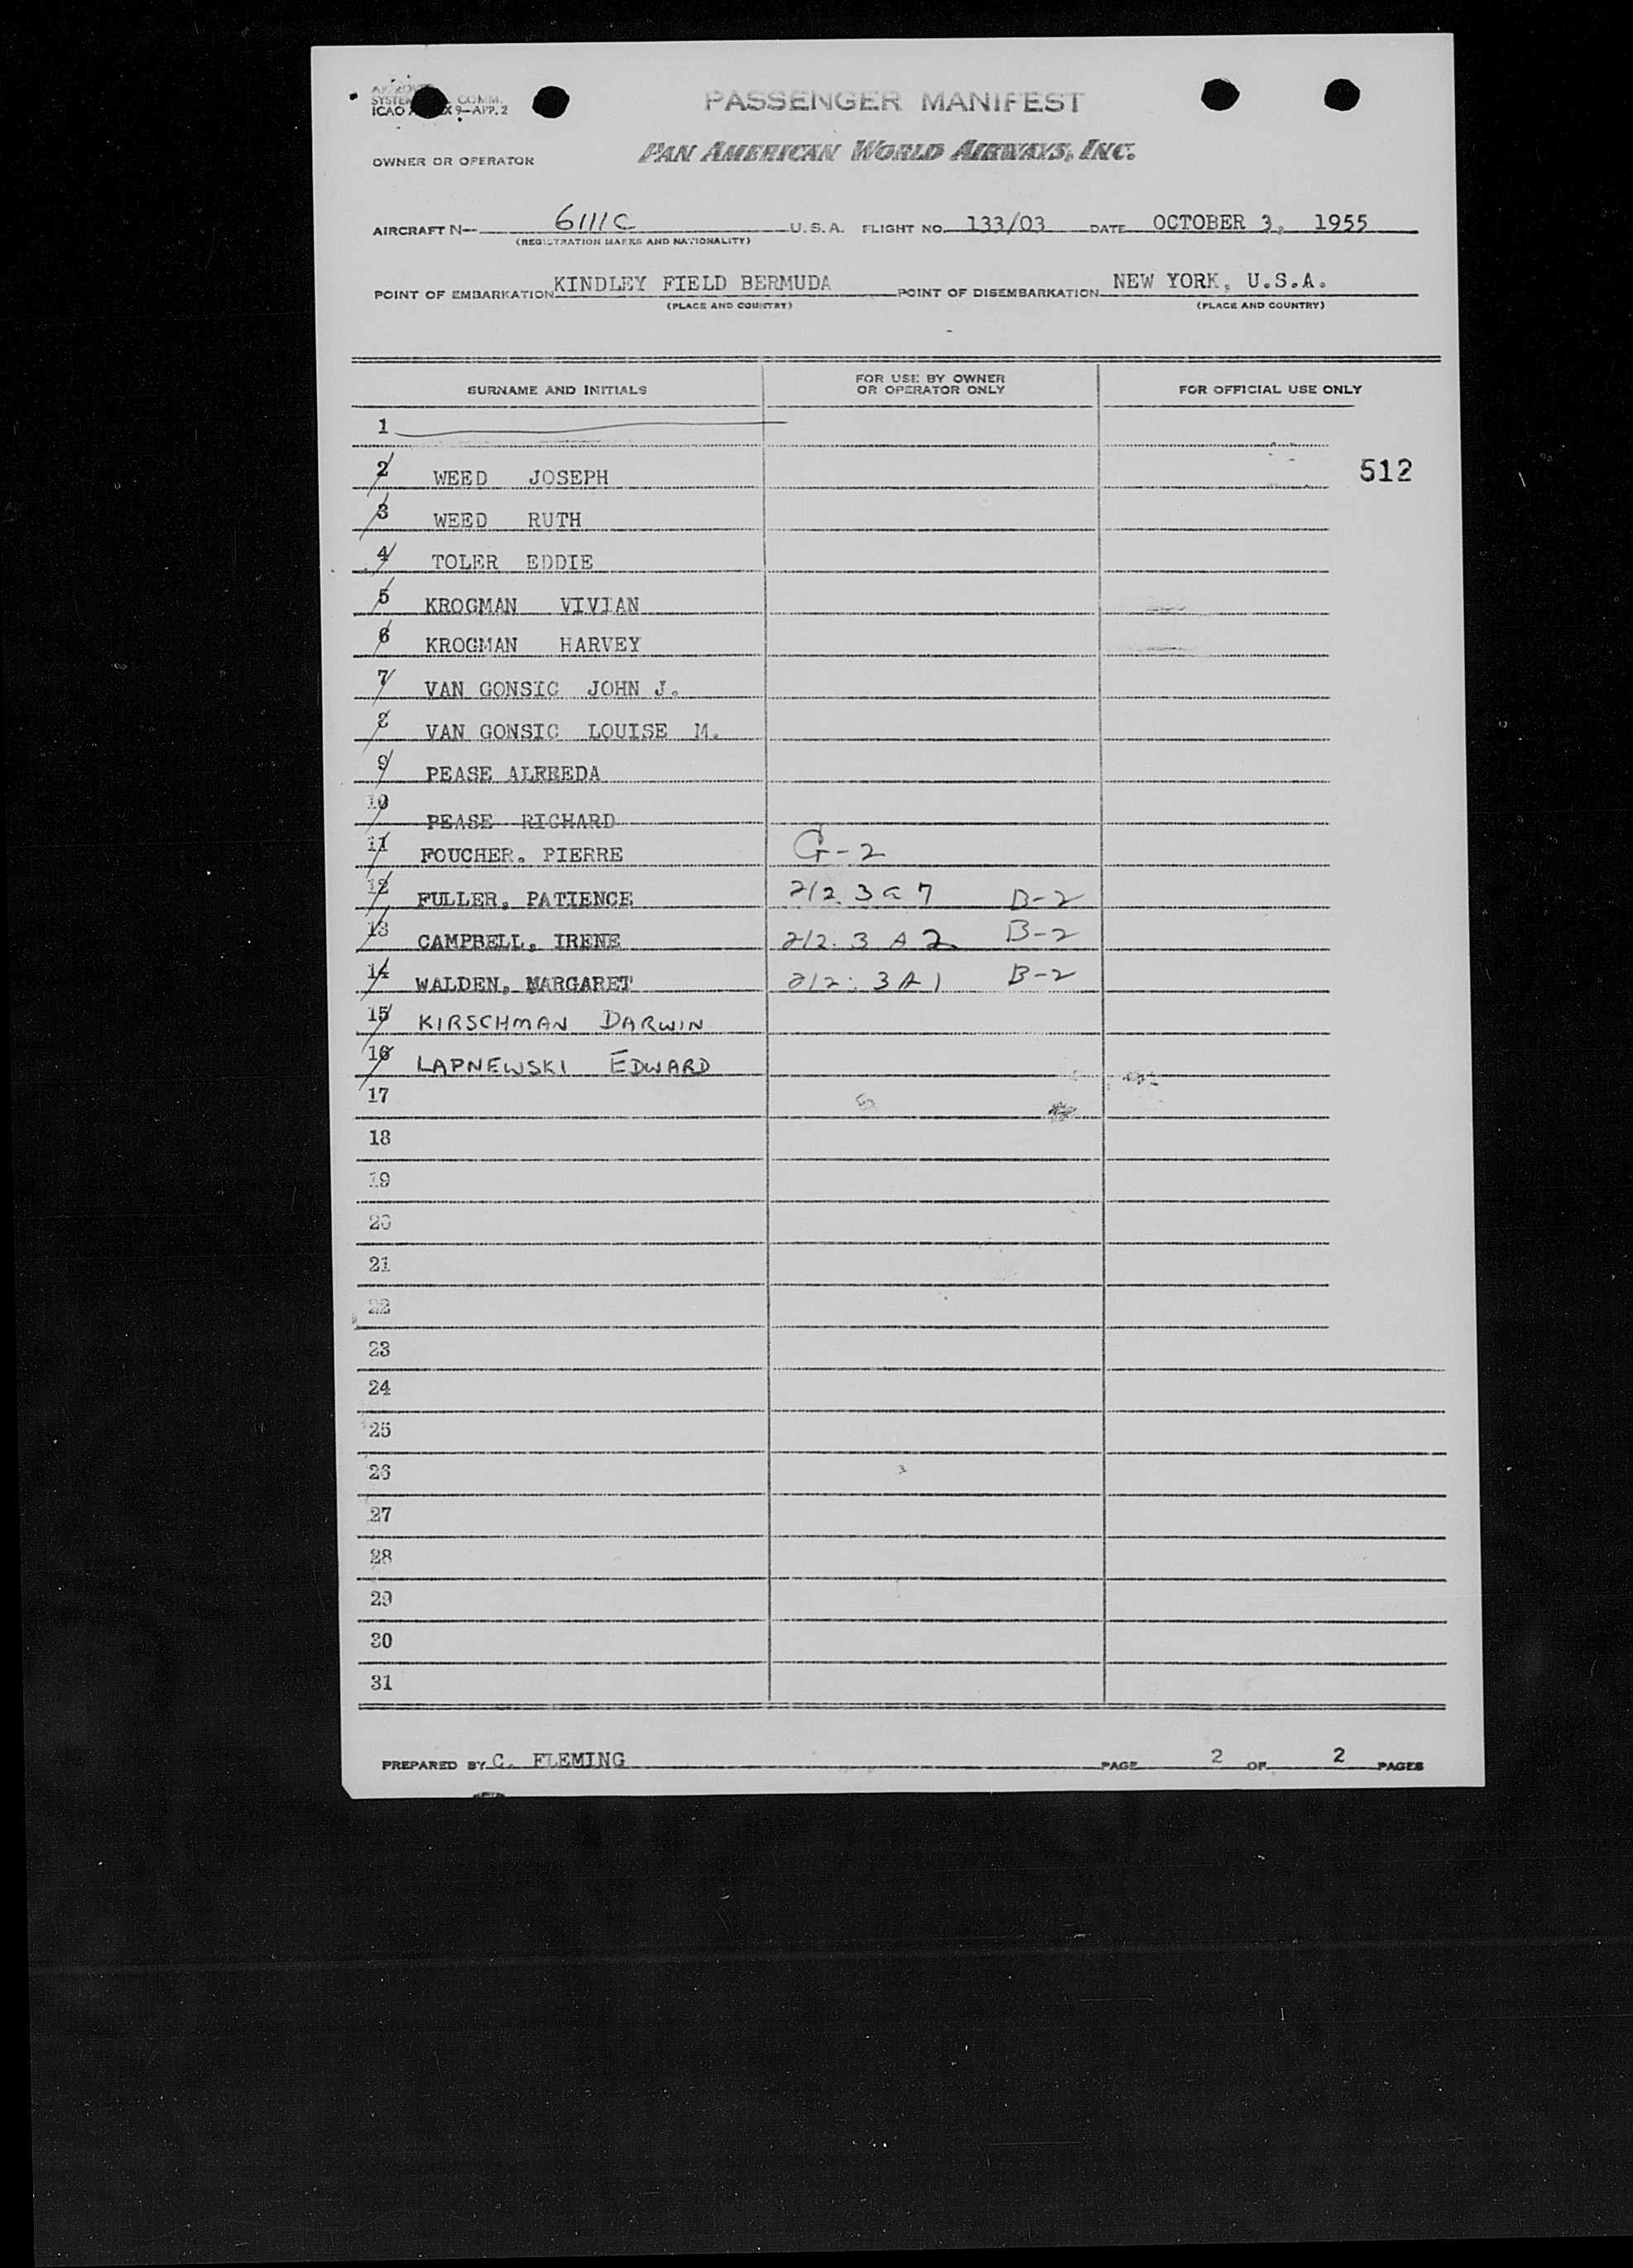 SYSTEM COMM.
ICAO 9-APP. 2
PASSENGER MANIFEST
OWNER OR OPERATOR PAN AMERICAN WORLD AIRWAYS, INC.
AIRCRAFT N- 6111C U.S.A. FLIGHT NO. 133/03 DATE OCTOBER 3, 1955
(REGISTRATION MARKS AND NATIONALITY)
POINT OF EMBARKATION KINDLEY FIELD BERMUDA POINT OF DISEMBARKATION NEW YORK, U.S.A.
(PLACE AND COUNTRY) (PLACE AND COUNTRY)
SURNAME AND INITIALS FOR USE BY OWNER OR OPERATOR ONLY FOR OFFICIAL USE ONLY
1
2 WEED JOSEPH 512
3 WEED RUTH
4 TOLER EDDIE
5 KROGMAN VIVIAN
6 KROGMAN HARVEY
7 VAN GONSIC JOHN J.
8 VAN GONSIC LOUISE M.
9 PEASE ALFREDA
10 PEASE RICHARD
11 FOUCHER, PIERRE G-2
12 FULLER, PATIENCE 212 3 a 7 B-2
13 CAMPBELL, IRENE 212. 3 A 2 B-2
14 WALDEN, MARGARET 212: 3 A 1 B-2
15 KIRSCHMAN DARWIN
16 LAPNEWSKI EDWARD
17
18
19
20
21
22
23
24
25
26
27
28
29
30
31
PREPARED BY C. FLEMING PAGE 2 OF 2 PAGES